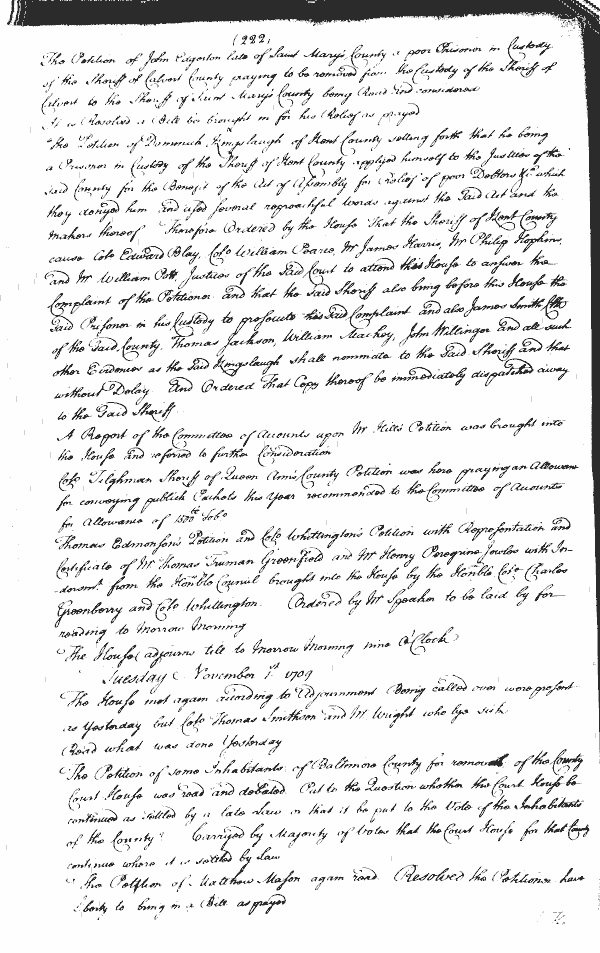 (222)
The Petition of John Edgerton late of Saint Mary's County a poor Prisoner in Custody
of the Sheriff of Calvert County praying to be removed from the Custody of the Sheriff of
Calvert to the Sheriff of Saint Mary's County being Read and considered
It is Resolved a Bill be brought in for his Relief as prayed
The Petition of Domenick Kingslaugh of Kent County setting forth that he being
a Prisoner in Custody of the Sheriff of Kent County applyed himself to the Justices of the
said County for the Benefit of the Act of Assembly for Relief of poor Debtors &c which
they denyed him and used several reproachful words against the said Act and the
makers thereof Therefore Ordered by the House That the Sheriff of Kent County
cause Colo Edward Blay, Colo William Pearce, Mr James Harris, Mr Philip Hopkins,
and Mr William Pott, Justices of the said Court to attend this House to answer the
Complaint of the Petitioner and that the said Sheriff also bring before this House the
said Prisoner in his Custody to prosecute his said Complaint and also James Smith Clk
of the said County, Thomas Jackson, William Mackey, John Willinger and all such
other Evidences as the said Kingslaugh shall nominate to the said Sheriff and that
without Delay And Ordered That Copy thereof be immediately dispatched away
to the said Sheriff
A Report of the Committee of Accounts upon Mr Hill's Petition was brought into
the House and referred to further Consideration
Colo Tilghman Sheriff of Queen Ann's County Petition was here praying an Allowance
for conveying publick Packets this Year recommended to the Committee of Accounts
for Allowance of 1500lb Tobo
Thomas Edmonson's Petition and Colo Whittington's Petition with Representation and
Certificate of Mr Thomas Truman Greenfield and Mr Henry Peregrine Jowles with In-
dorsmt from the Honble Council brought into the House by the Honble Colo Charles
Greenberry and Colo Whittington. Ordered by Mr Speaker to be laid by for
reading to Morrow Morning
The House adjourns till to Morrow Morning nine O'Clock
Tuesday November 1st 1709
The House met again according to Adjournment Being called over were present
as Yesterday but Colo Thomas Smithson and Mr Wright who lye sick
Read what was done Yesterday
The Petition of some Inhabitants of Baltimore County for removal of the County
Court House was read and debated Put to the Question whether the Court House be
continued as settled by a late Law or that it be put to the Vote of the Inhabitants
of the County? Carryed by Majority of Votes that the Court House for that County
continue where it is settled by Law
The Petition of Matthew Mason again read Resolved the Petitioner have
liberty to bring in a Bill as prayed